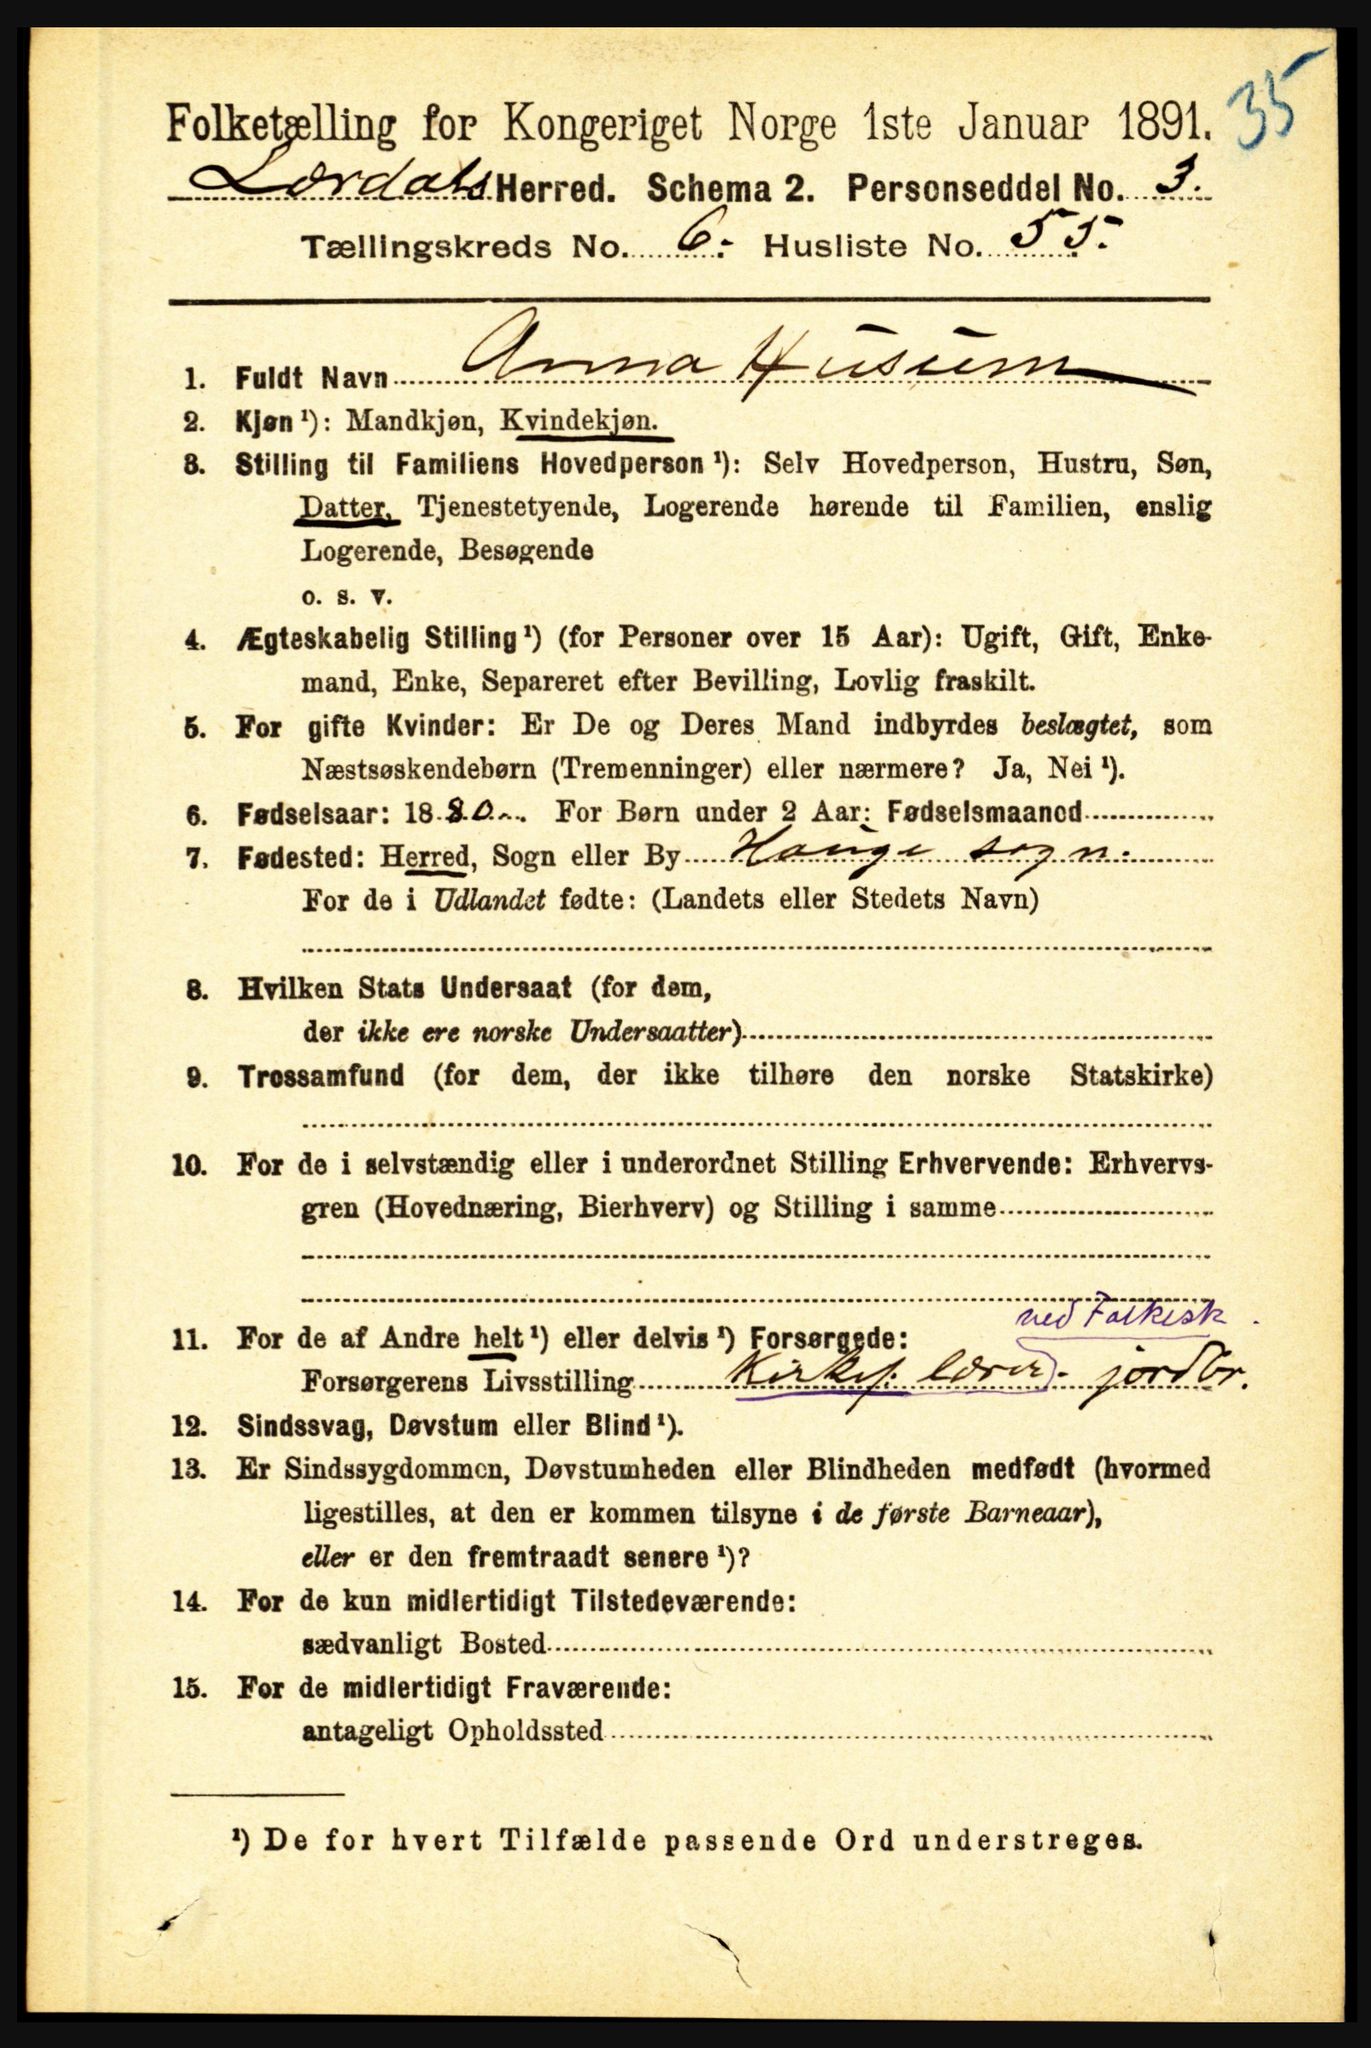 35
Folketælling for Kongeriget Norge 1ste Januar 1891.
Lærdals Herred. Schema 2. Personseddel No. 3.
Tællingskreds No. 6. Husliste No. 55.
1. Fuldt Navn Anna Husum
2. Kjøn ¹): Mandkjøn, Kvindekjøn.
3. Stilling til Familiens Hovedperson ¹): Selv Hovedperson, Hustru, Søn,
Datter, Tjenestetyende, Logerende hørende til Familien, enslig
Logerende, Besøgende
o. s. v.
4. Ægteskabelig Stilling ¹) (for Personer over 15 Aar): Ugift, Gift, Enke-
mand, Enke, Separeret efter Bevilling, Lovlig fraskilt.
5. For gifte Kvinder: Er De og Deres Mand indbyrdes beslægtet, som
Næstsøskendebørn (Tremenninger) eller nærmere? Ja, Nei ¹).
6. Fødselsaar: 1880. For Børn under 2 Aar: Fødselsmaaned
7. Fødested: Herred, Sogn eller By Hauge sogn.
For de i Udlandet fødte: (Landets eller Stedets Navn)
8. Hvilken Stats Undersaat (for dem,
der ikke ere norske Undersaatter)
9. Trossamfund (for dem, der ikke tilhøre den norske Statskirke)
10. For de i selvstændig eller i underordnet Stilling Erhvervende: Erhvervs-
gren (Hovednæring, Bierhverv) og Stilling i samme
ved Folkesk.
11. For de af Andre helt ¹) eller delvis ¹) Forsørgede:
Forsørgerens Livsstilling Kirkes: lærer - jordbr.
12. Sindssvag, Døvstum eller Blind ¹).
13. Er Sindssygdommen, Døvstumheden eller Blindheden medfødt (hvormed
ligestilles, at den er kommen tilsyne i de første Barneaar),
eller er den fremtraadt senere ¹)?
14. For de kun midlertidigt Tilstedeværende:
sædvanligt Bosted
15. For de midlertidigt Fraværende:
antageligt Opholdssted
¹) De for hvert Tilfælde passende Ord understreges.